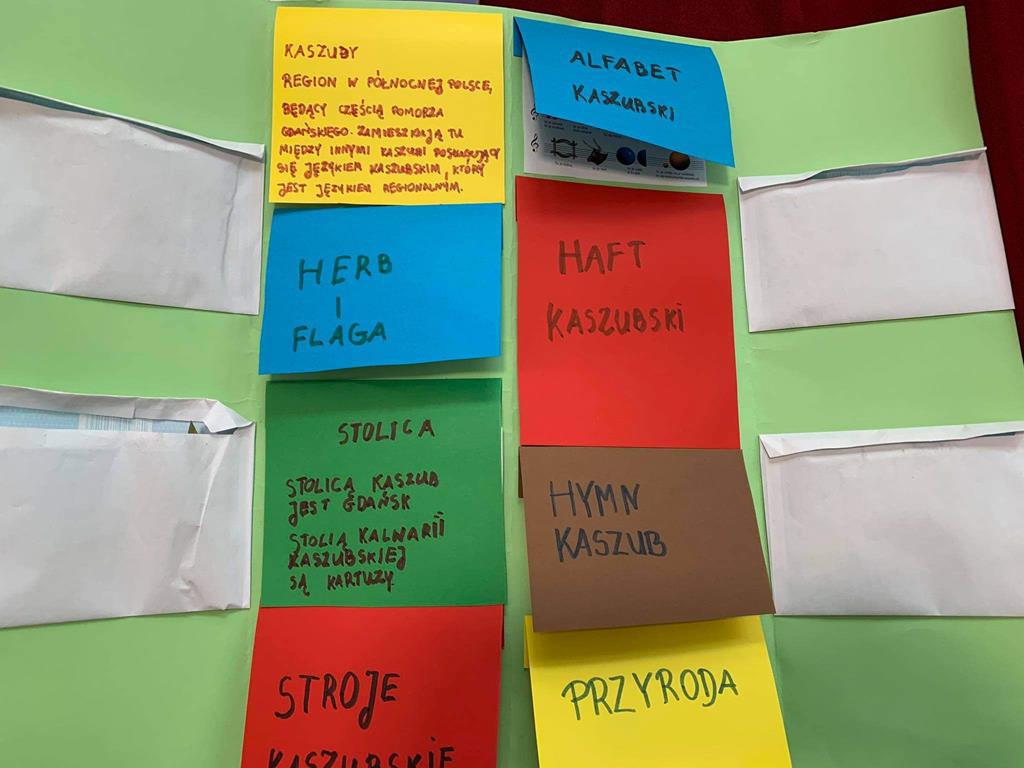 KASZUBY
REGION W PÓŁNOCNEJ POLSCE,
BĘDĄCY CZĘŚCIĄ POMORZA
GDAŃSKIEGO. ZAMIESZKUJĄ TU
MIĘDZY INNYMI KASZUBI POSŁUGUJĄCY
SIĘ JĘZYKIEM KASZUBSKIM, KTÓRY
JEST JĘZYKIEM REGIONALNYM.
HERB
I
FLAGA
STOLICA
STOLICĄ KASZUB
JEST GDAŃSK
STOLIĄ KALWARII
KASZUBSKIEJ
SĄ KARTUZY.
STROJE
KASZUBSKIE
ALFABET
KASZUBSKI
HAFT
KASZUBSKI
HYMN
KASZUB
PRZYRODA